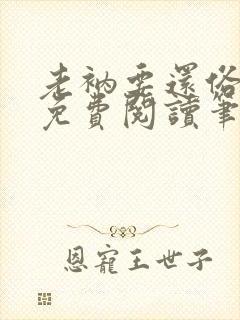 老衲要還俗
免費閱讀筆
恩寵王世子